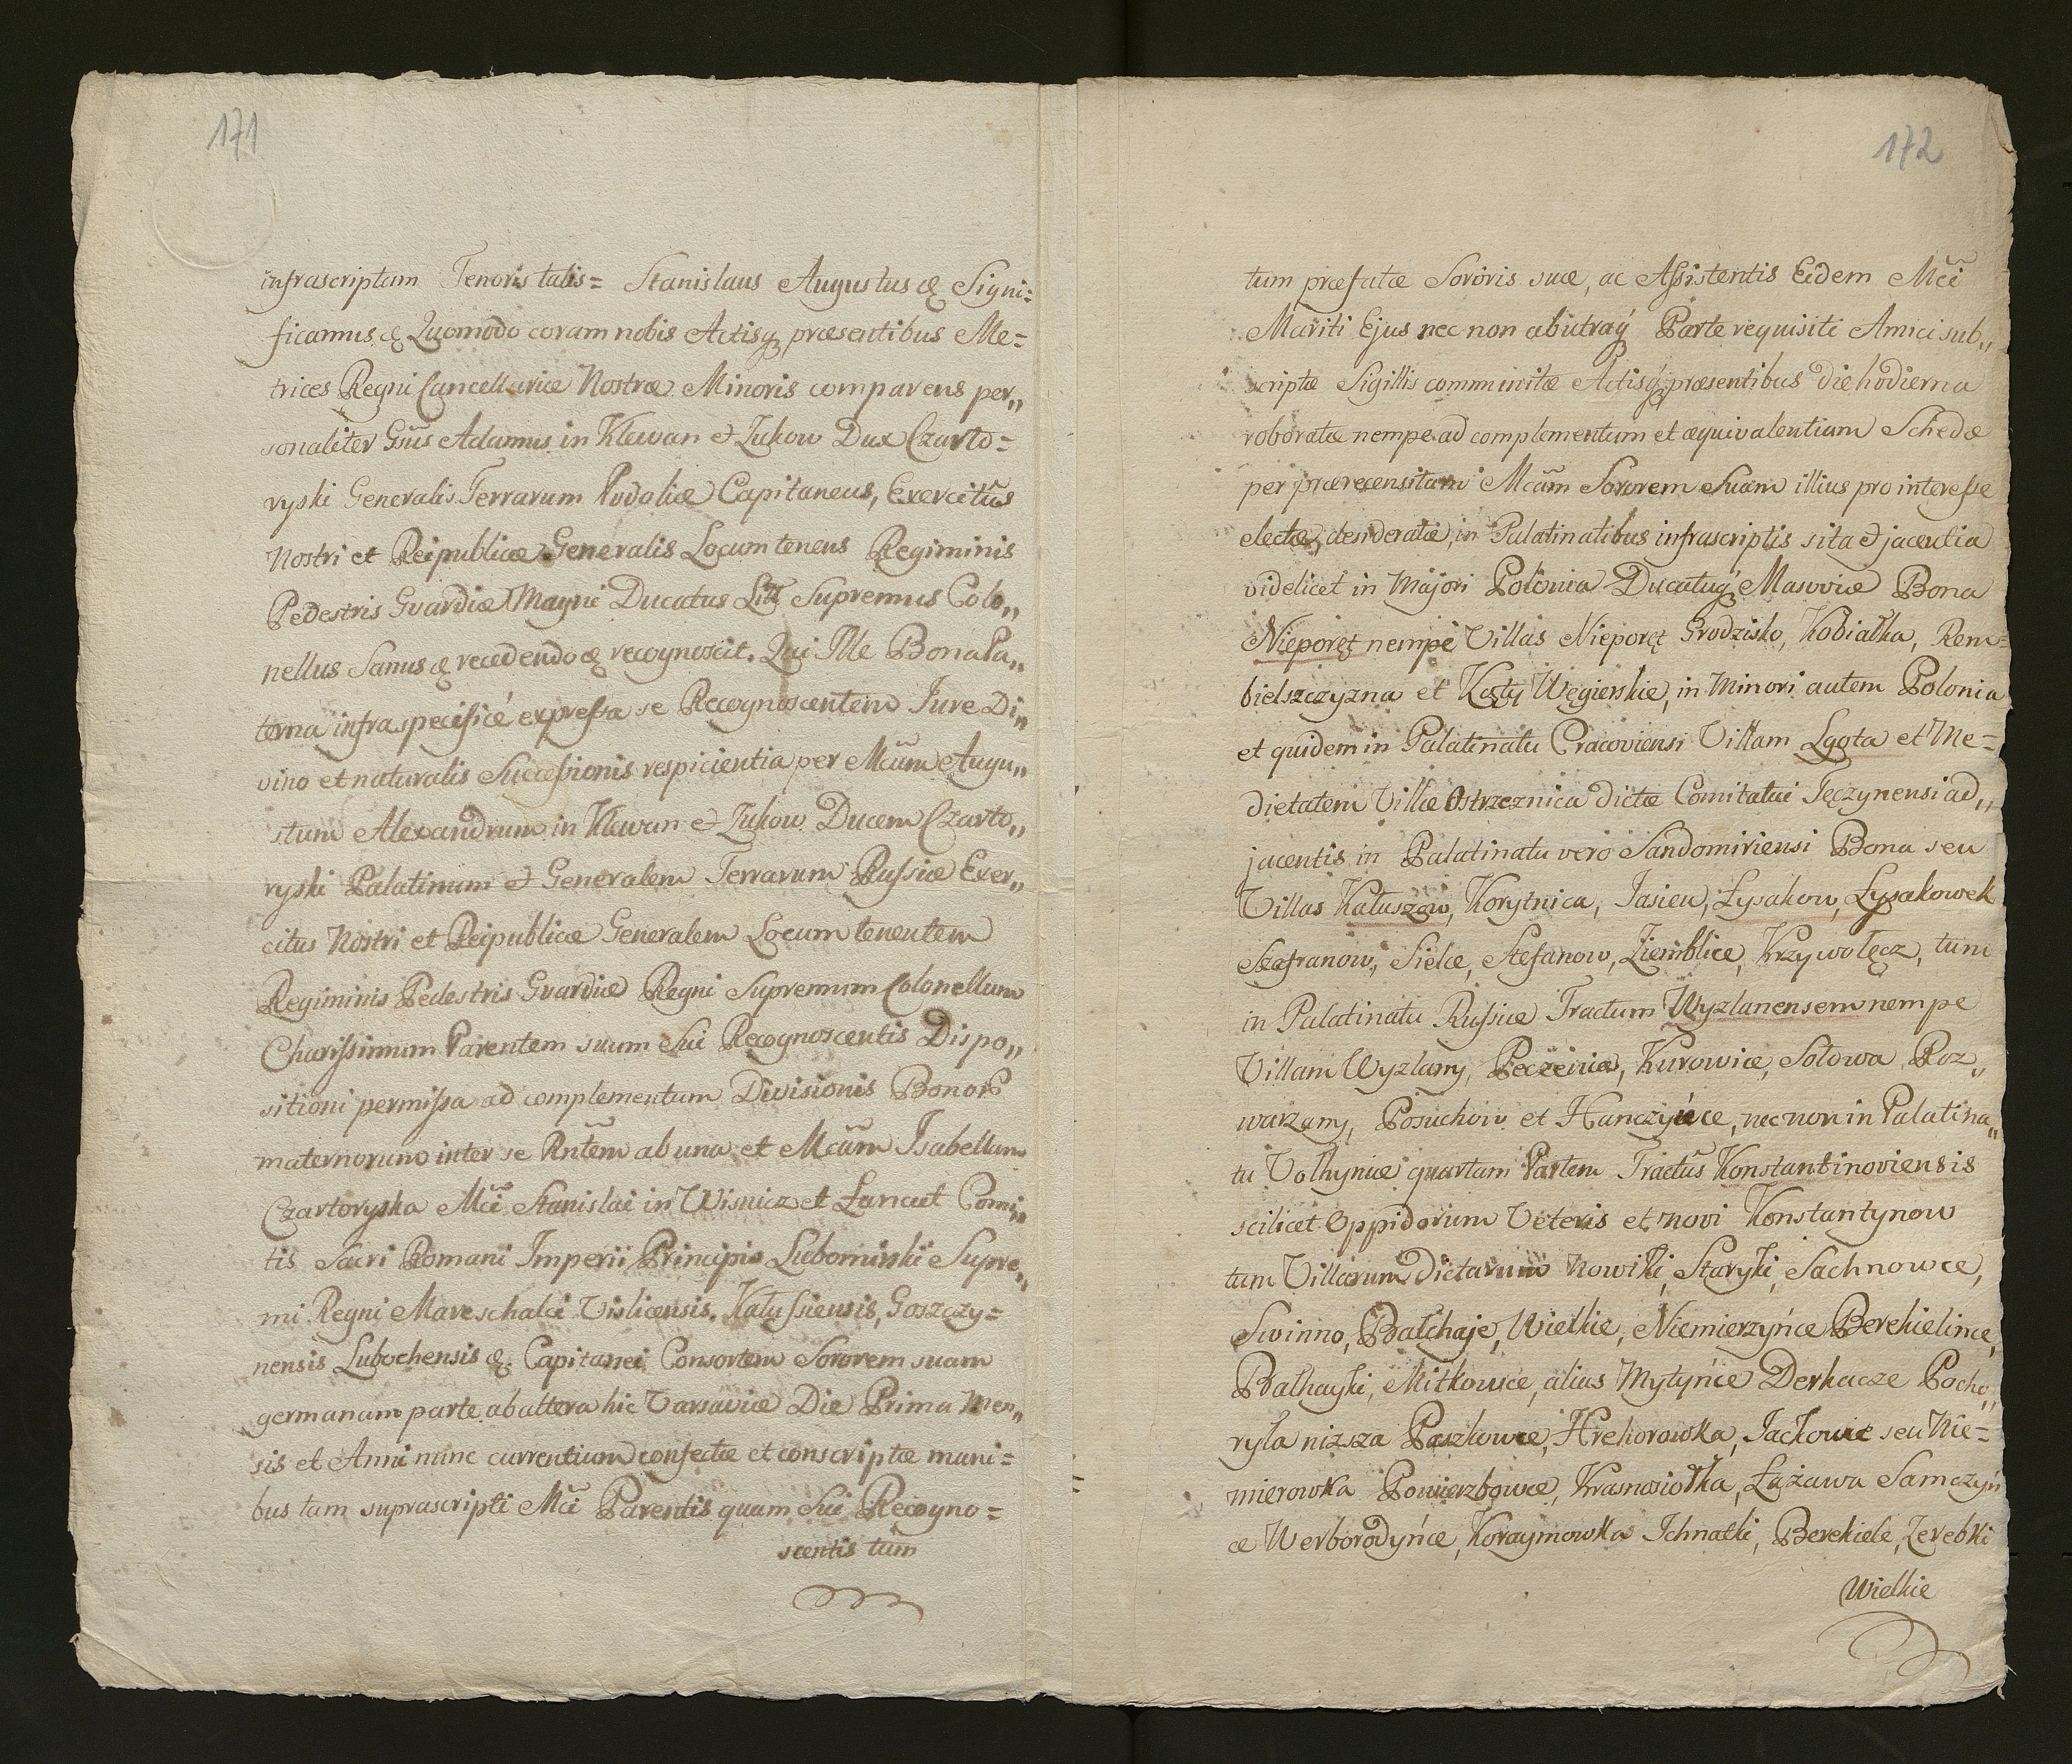 171
infrascriptam Tenoris talis= Stanislaus Augustus &c Signi=
ficamus &c Quomodo coram nobis Actisq præsentibus Me=
trices Regni Cancellariæ Nostræ Minoris comparens per„
sonaliter Gsūs Adamus in Klewan et Zukow Dux Czarto=
ryski Generalis Terrarum Podoliæ Capitaneus, Exercitūs
Nostri et Reipublicæ Generalis Locum tenens Regiminis
Pedestris Gvardiæ Magni Ducatus Litt Supremus Colo„
nellus Sanus &c recedendo &c recognoscit. Qui Ille Bona Pa„
terna infra specificé expressa se Recognoscentem Jure Di„
vino et naturalis Successionis respicientia per Mcūm Augu„
stum Alexandrum in Klewan et Zukow Ducem Czarto„
ryski Palatinum et Generalem Terrarum Russiæ Exer„
citus Nostri et Reipublicæ Generalem Locum tenentem
Regiminis Pedestris Gvardiæ Regni Supremum Colonellum
Charissimum Parentem suum Sui Recognoscentis Dispo„
sitioni permissa ad complementum Divisionis Bonor
maternorum inter se Rntēm ab una et Mcām Isabellam
Czartoryska Mci Stanislai in Wisnicz et Lancut Comi„
tis Sacri Romani Imperii Principis Lubomirski Supre„
mi Regni Mareschalci Vislicensis. Kalussiensis, Goszczy=
nensis Lubochensis &c. Capitanei Consortem Sororem suam
germanam parte ab altera hic Varsaviæ Die Prima Men„
sis et Anni nunc currentium confectæ et conscriptæ mani=
bus tam suprascripti Mci Parentis quam Sui Recogno=
scentis tum
172
tum præfatæ Sororis suæ, ac Assistentis Eidem Mci
Mariti Ejus nec non ab utraq Parte requisiti Amici sub„
scriptæ Sigillis communitæ Actisq præsentibus die hodierna
roboratæ nempe ad complementum et æquivalentiam Schedæ
per prærecensitam Mcām Sororem Suam illius pro interesse
electæ, desideratæ, in Palatinatibus infrascriptis sita et jacentia
videlicet in Majori Polonia Ducatuq Masoviæ Bona
Nieporęt nempe Villas Nieporęt Grodzisko, Kobiałka, Rem=
bielszczyzna et Kąty Węgierskie, in Minori autem Polonia
et quidem in Palatinatu Cracoviensi Villam Lgota et Me=
dietatem Villæ Ostrzeznica dictæ Comitatui Tęczynensi ad„
jacentis in Palatinatu vero Sandomiriensi Bona seu
Villas Kałuszow, Korytnica, Jasien, Łysakow, Łysakowek
Szafranow, Sielce, Stefanow, Ziemblice, Krzywołęcz, tum
in Palatinatu Russiæ Tractum Wyzlanensem nempe
Villam Wyzlany, Peczenia, Kurowice, Solowa, Poz„
warzany, Posuchow et Hanczyńce, nec non in Palatina„
tu Volhyniæ quartam Partem Tractūs Konstantinoviensis
scilicet Oppidorum Veteris et novi Konstantynow
tum Villarum dictarum Nowiki, Staryki, Sachnowce,
Swinno, Bałchaje, Wielkie, Niemierzyńce Berehelince,
Bałhayki, Mitkowce, alias Mytyńce Derkacze Pocho„
ryla nizsza Paszkowce, Hrehorowka, Jackowce seu Nie=
mierowka Powierzbowce, Krasnosiołka, Łażawa Samczyń
ce Werborodyńce, Koraymowka Jchnatki, Berehiele, Zerebki
Wielkie